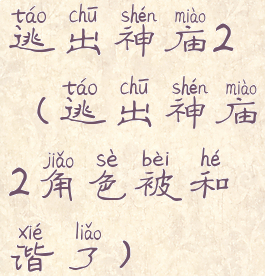 táo chū shén miào
逃出神庙2
táo chū shén miào
(逃出神庙
jiǎo sè bèi hé
2角色被和
xié liǎo
谐了)